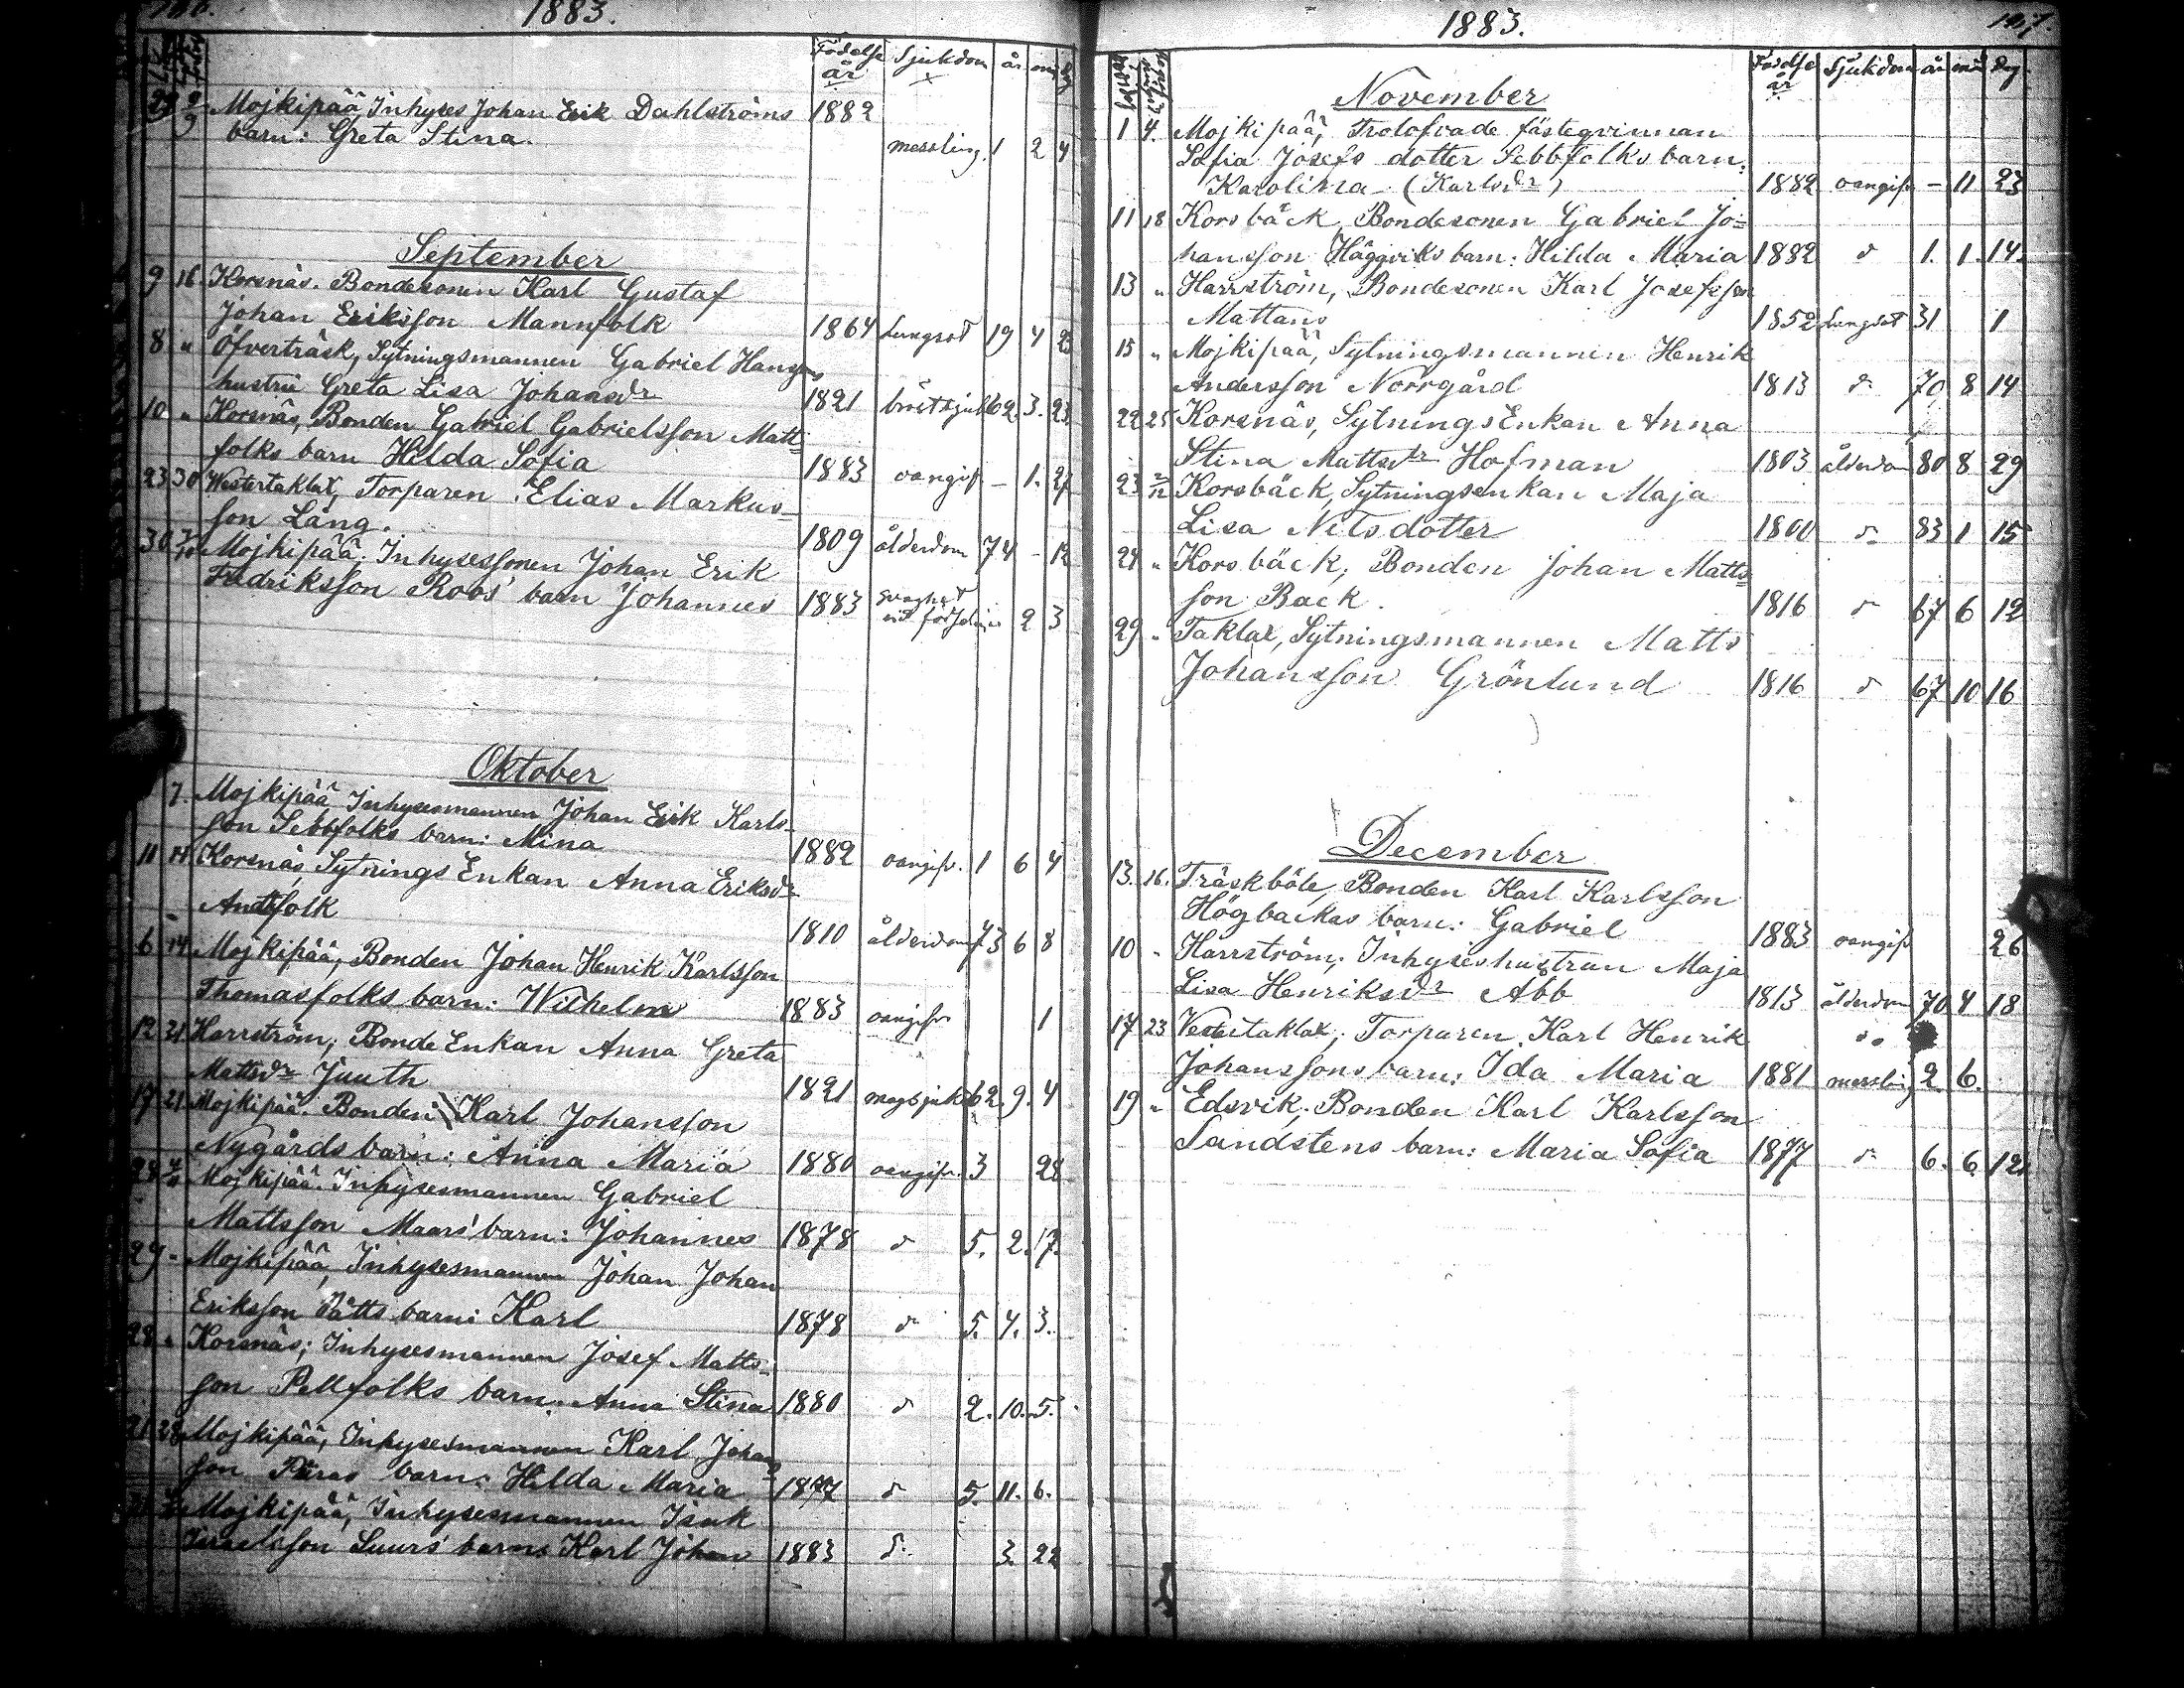 1883.
Födelse år Sjukdom år mn dag
Mojkipää, Inhyses Johan Erik Dahlströms 1882
barn: Greta Stina. messling. 1 2 4
September
9 16 Korsnäs. Bondesonen Karl Gustaf
Johan Eriksson Mannfolk 1864 Lungsot 19 4 23
8 " Öfverträsk, Sytningsmannen Gabriel Hanssons
hustru Greta Lisa Johansdr 1821 bröstsjuk 62. 3. 23
10 " Korsnäs, Bonden Gabriel Gabrielsson Matt=
folks barn Hilda Sofia 1883 oangif. – 1. 27
23 30 Westertaklax, Torparen Elias Markus-
son Lång. 1809 ålderdom 74 – 12
30 7/10 Mojkipää. Inhysessonen Johan Erik
Fredriksson Roos' barn Johannes 1883 svaghet vid födseln 2 3
Oktober
7. Mojkipää Inhysesmannen Johan Erik Karls-
son Sebbfolks barn: Mina 1882 oangifv. 1 6 4
11 14 Korsnäs, Sytnings Enkan Anna Eriksdr
Andtfolk 1810 ålderdom 73 6 8
6 14 Mojkipää, Bonden Johan Henrik Karlsson
Thomasfolks barn: Wilhelm 1883 oangifv 1
12 21 Harrström; Bonde Enkan Anna Greta
Mattsdr Juuth 1821 magsjuk 62. 9. 4
17 21 Mojkipää. Bonden Karl Johansson
Nygårds barn: Anna Maria 1880 oangifv. 3 28
28 Mojkipää. Inhysesmannen Gabriel
Mattsson Maars' barn: Johannes 1878 d 5. 2. 17.
29 - Mojkipää, Inhysesmannen Johan Johan
Eriksson Pätts barn: Karl 1878 d 5. 4. 3.
28 " Korsnäs; Inhysesmannen Josef Matts-
son Pellfolks barn. Anna Stina 1880 d 2. 10. 5.
21 28 Mojkipää, Inhysesmannen Karl Johans
son barn: Hilda Maria 1877 d 5. 11. 6.
Mojkipää, Inhysesmannen Isak
Israelsson Suurs' barn: Karl Johan 1883 d. 3. 22
1883. 127.
Födelse år Sjukdom år mån dag
November
1 4. Mojkipää, Trolofvade fästeqvinnan
Sofia Josefs dotter Sebbfolks barn:
Karolina (Karlsdr) 1882 oangifv – 11 23
11 18 Korsbäck, Bondesonen Gabriel Jo=
hansson Häggviks barn: Hilda Maria 1882 d 1. 1. 14.
13 " Harrström, Bondesonen Karl Josefsson
Mattans 1852 Lungsot 31 1
15 " Mojkipää, Sytningsmannen Henrik
Andersson Norrgård 1813 d 70 8 14
22 25 Korsnäs, Sytnings Enkan Anna
Stina Mattsdr Hofman 1803 ålderdom 80 8 29
23 2/12 Korsbäck, Sytningsenkan Maja
Lisa Nilsdotter 1800 d 83 1 15
24 " Korsbäck, Bonden Johan Matts=
son Back. 1816 d 67 6 12
29 " Taklax, Sytningsmannen Matts
Johansson Grönlund 1816 d 67 10 16
December
13. 16. Träskböle, Bonden Karl Karlsson
Högbackas barn: Gabriel 1883 oangifv 26
10 " Harrström, Inhyseshustrun Maja
Lisa Henriksdr Abb 1813 ålderdom 70 4 18
17 23 Vestertaklax, Torparen Karl Henrik
Johanssons barn: Ida Maria 1881 messling 2. 6.
19 " Edsvik, Bonden Karl Karlsson
Sandstens barn: Maria Sofia 1877 d 6. 6 12.